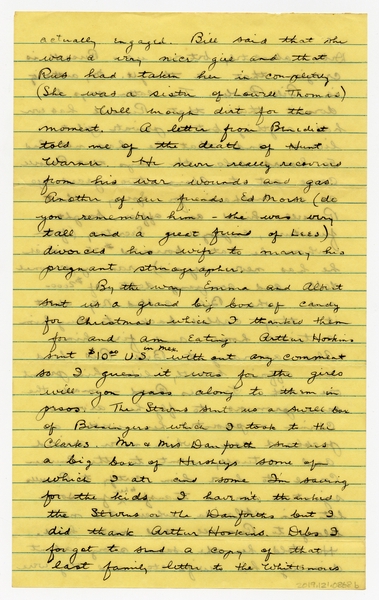 actually engaged. Bill said that she
was a very nice girl and that
Russ had taken her in completely
(She was a sister of Lowell Thomas)
Well enough dirt for the
moment. A letter from Benedict
told me of the death of Hunt
Warner. He never really recovered
from his war wounds and gas.
Another of our friends Ed Morse (do
you remember him - she was very
tall and a great friend of Lees)
divorced his wife to marry his
pregnant stenographer.
By the way Emma and Albert
sent us a grand big box of candy
for Christmas which I thanked them
for and am Eating. Arthur Hoskins
sent $10.00 U.S. in Mex. without any comment
so I guess it was for the girls
will you pass along to them in
pesos. The Stevens sent us a swell box
of Bissingers which I took to the
Clarks. Mr & Mrs Danforth sent us
a big box of Hersheys some of
which I ate and some I'm saving
for the kids. I haven't thanked
the Stevens or the Danforths but I
did thank Arthur Hoskins. Debs I
forgot to send a copy of that
last family letter to the Whittemores